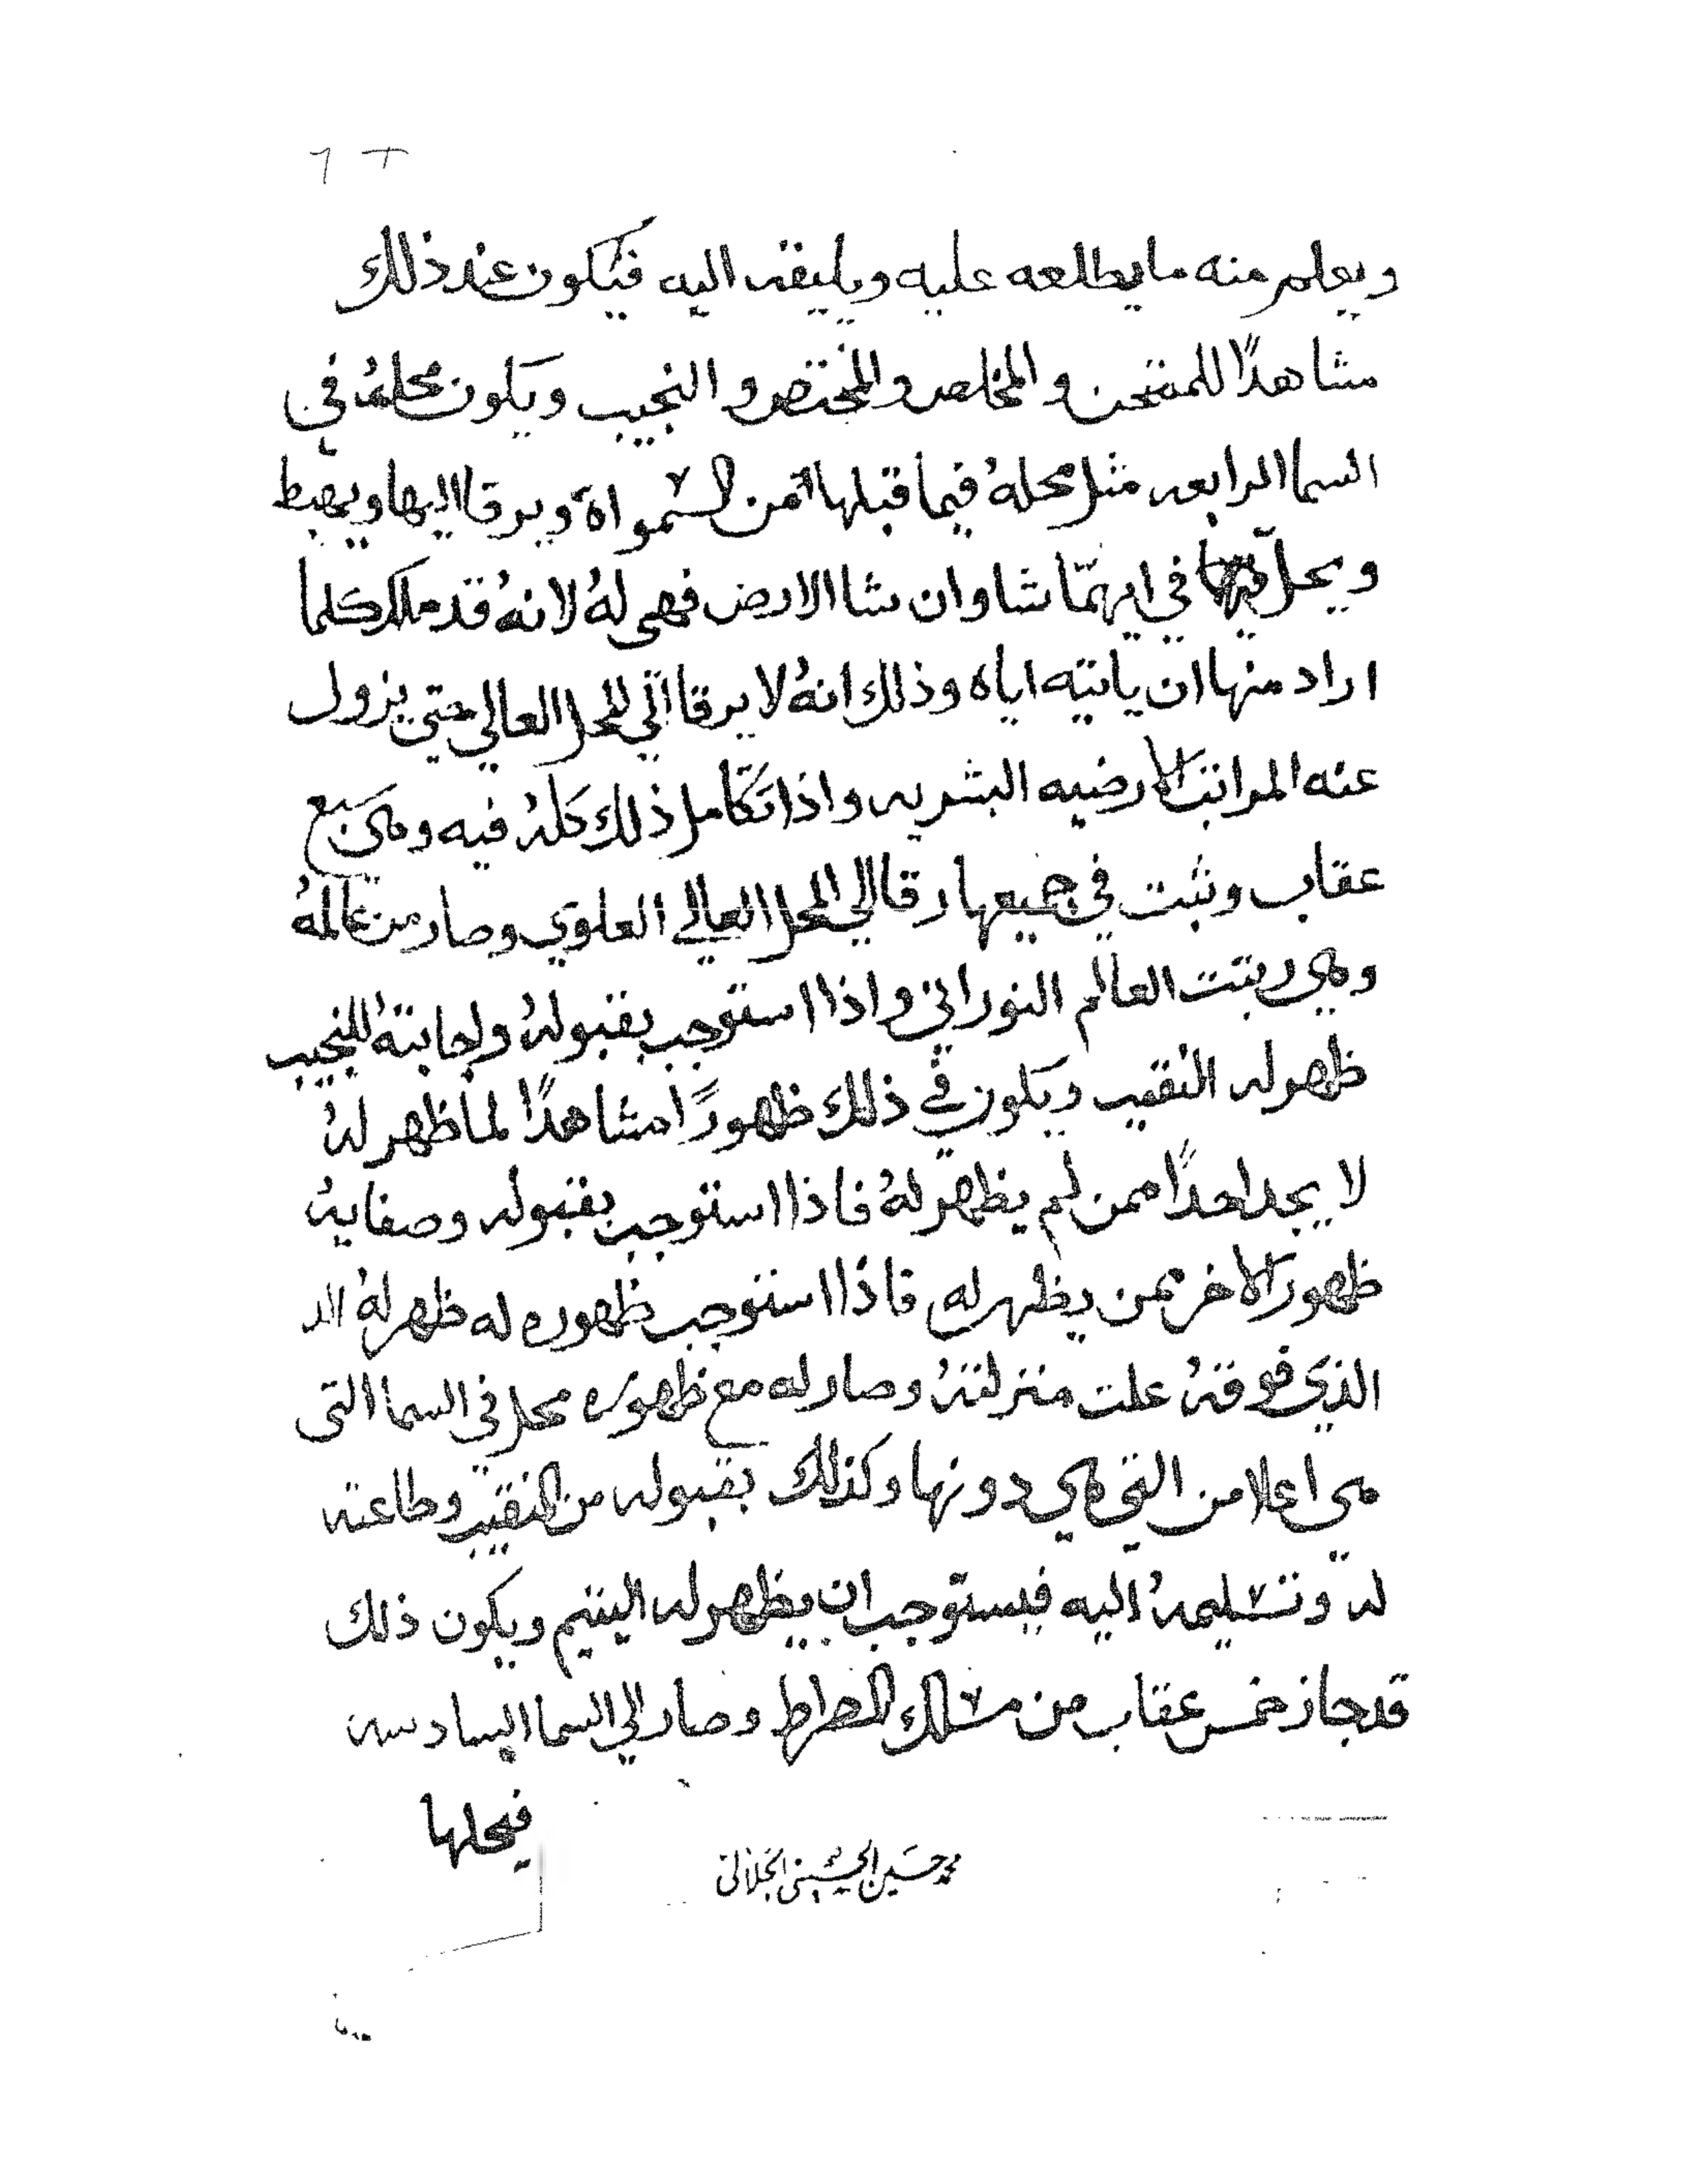 ويعلم منه ما يطلعه عليه ويليقه اليه فيكون عند ذلك
مشاهدًا للممتحن والمخلص والمختص والنجيب ويكون محلهُ في
السما الرابعه مثل محلهُ فيما قبلها من السمواة ويرقا اليها ويهبط
ويحل في ايهمّا شا وان شا الارض فهي لهُ لانهُ قد ملك كلما
اراد منها ان ياتيه اياه وذلك انهُ لا يرقا الي المحل العالي حتي يزول
عنه المراتب الارضيه البشريه واذا تكامل ذلك كلهُ فيه وهي سبع
عقاب وثبت في جميعها رقا الي المحل العالي العلوي وصار من عالمهُ
وهي ربتت العالم النوراني واذا استوجب بقبولهُ واجابتهُ للنجيب
ظهر له النقيب ويكون في ذلك ظهورًا مشاهدًا لما ظهر لهُ
لا يجد احدًا ممن لم يظهر لهُ فاذا استوجب بقبوله وصفايهُ
ظهور الاخر ممن يظهر له فاذا استوجب ظهوره له ظهر لهُ الد
الذي فوقهُ علت منزلتهُ وصار له مع ظهوره محل في السما التي
هي اعلا من التي هي دونها وكذلك بقبوله من النقيب وطاعته
له وتسليمهُ اليه فيستوجب ان يظهر له اليتيم ويكون ذلك
قد جاز خمس عقاب من مسالك الصراط وصار الي السما السادسه
فيحلها
محمد حسين الحسيني الجلالي